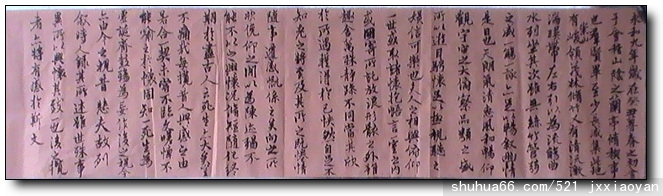 永和九年歲在癸丑暮春之初會
于會稽山陰之蘭亭脩禊事
也羣賢畢至少長咸集此地
有峻領茂林脩竹又有清流激
湍暎帶左右引以為流觴曲
水列坐其次雖無絲竹管弦
之盛一觴一詠亦足以暢敘幽情
是日也天朗氣清惠風和暢仰
觀宇宙之大俯察品類之盛
所以遊目騁懷足以極視聽
之娛信可樂也夫人之相與俯仰
一世或取諸懷抱悟言一室之內
或因寄所託放浪形骸之外雖
趣舍萬殊靜躁不同當其欣
於所遇暫得於己快然自足不
知老之將至及其所之既惓情
隨事遷感慨係之矣向之所
欣俛仰之間以為陳迹猶不
能不以之興懷況脩短隨化終
期於盡古人云死生亦大矣豈
不痛哉每攬昔人興感之由
若合一契未嘗不臨文嗟悼不
能喻之於懷固知一死生為
虛誕齊彭殤為妄作後之視今
亦由今之視昔悲夫故列
敘時人錄其所述雖世殊事
異所以興懷其致一也後之攬
者亦將有感於斯文
shuhua66.com/521 jxxiaoyan